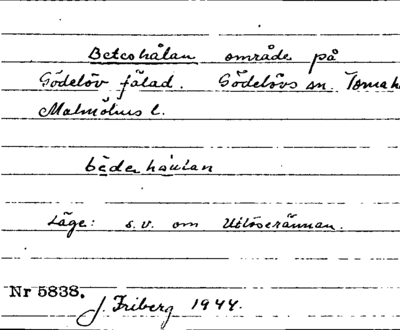 Betcohålan område på
Gödelöv fälad. Gödelövs sn. Torna h
Malmöhus l.
bèdenháulan
Läge: s.v. om Utlöserännan.
Nr 5838.
J. Friberg 1944.